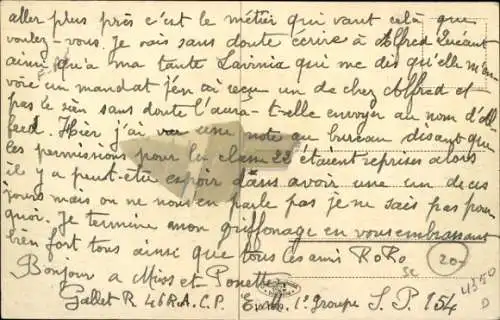 aller plus près c'est le métier qui vaut celà que
voulez-vous. Je vais sans doute écrire à Alfred Quéant
ainsi qu'a ma tante Lavinia qui me dis qu'elle m'en
voie un mandat j'en ai reçu un de chez Alfred et
pas le sien sans doute l'aura-t-elle envoyer au nom d'Al
fred. Hier j'ai vu une note au bureau disant que
les permissions pour la classe 22 étaient reprises alors
il y a peut-être espoir dans avoir une un de ces
jours mais on ne nous en parle pas je ne sais pas pour
quoi. Je termine mon griffonage en vous embrassant
bien fort tous ainsi que tous les amis RoRo
Bonjour a Mios et Ponette
Gallet R 46 R.A.C.P. 1e groupe S.P. 154
20
4550